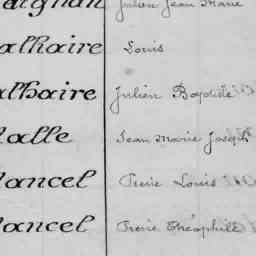 aignan Julien Jean Marie
alhaire Louis
alhaire Julien Baptiste
alle Jean Marie Joseph
ancel Pierre Louis
ancel Pierre Théophile